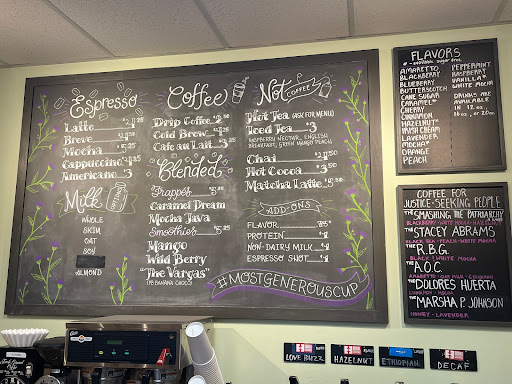 Espresso
Latte
Breve
Mocha
Cappuccino
Americano 3
Milk
OPTIONS
WHOLE
SKIM
OAT
SOY
ALMOND
Coffee
Drip Coffee
Cold Brew
Cafe au Lait
Blended
Frappes
Caramel Dream
Mocha Java
Smoothies
Mango
Wild Berry
"The Vargas"
(PB BANANA CHOCO)
Not COFFEE
Hot Tea (ASK FOR MENU)
Iced Tea 3
RASPBERRY NECTAR, ENGLISH
BREAKFAST, GREEN MANGO PEACH
Chai
Hot Cocoa
Matcha Latte
ADD-ONS
FLAVOR
PROTEIN $1
NON-DAIRY MILK $1
ESPRESSO SHOT $1
#MOSTGENEROUSCUP
FLAVORS
* = available sugar free
AMARETTO
BLACKBERRY
BLUEBERRY
BUTTERSCOTCH
CANE SUGAR
CARAMEL*
CHERRY
CINNAMON
HAZELNUT*
IRISH CREAM
LAVENDER
MOCHA*
ORANGE
PEACH
PEPPERMINT
RASPBERRY
VANILLA*
WHITE MOCHA
DRINKS ARE
AVAILABLE
IN 12 oz,
16 oz, or 20 oz.
COFFEE FOR
JUSTICE-SEEKING PEOPLE
THE SMASHING THE PATRIARCHY
BLACKBERRY - WHITE MOCHA
THE STACEY ABRAMS
BLACK TEA - PEACH - WHITE MOCHA
THE R.B.G.
BLACK & WHITE MOCHA
THE A.O.C.
THE DOLORES HUERTA
CINNAMON - MOCHA
THE MARSHA P. JOHNSON
HONEY - LAVENDER
LOVE BUZZ
HAZELNUT
ETHIOPIAN
DECAF